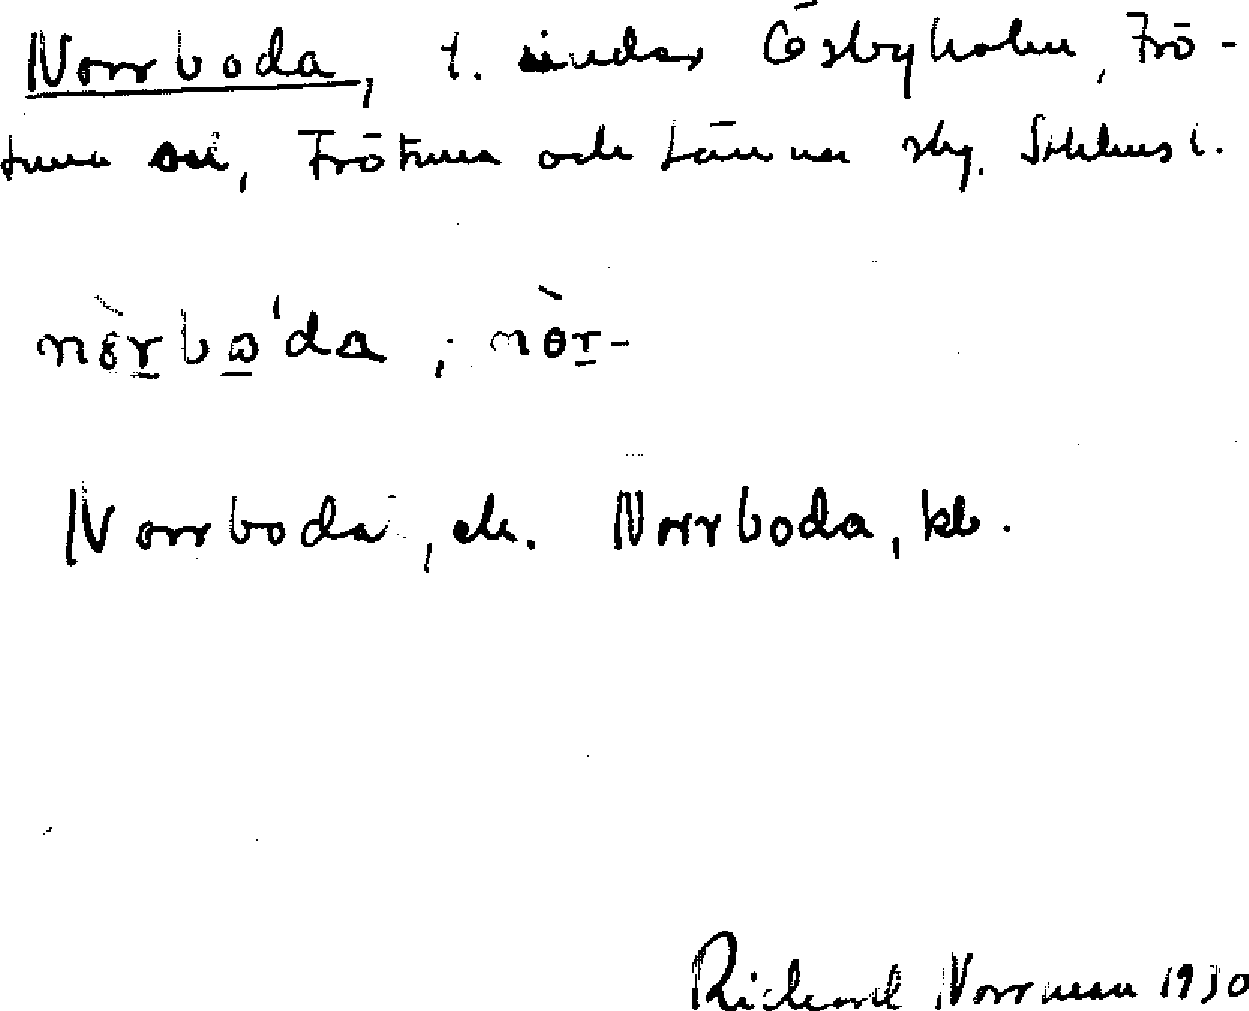 Norrboda, t. under Ösbyholm, Frö-
tuna sn, Frötuna och Länna skg. Sthlms l.
nèrbɷ'da ; nòr-
Norrboda, ek. Norrboda, kb.
Richard Norrman 1930